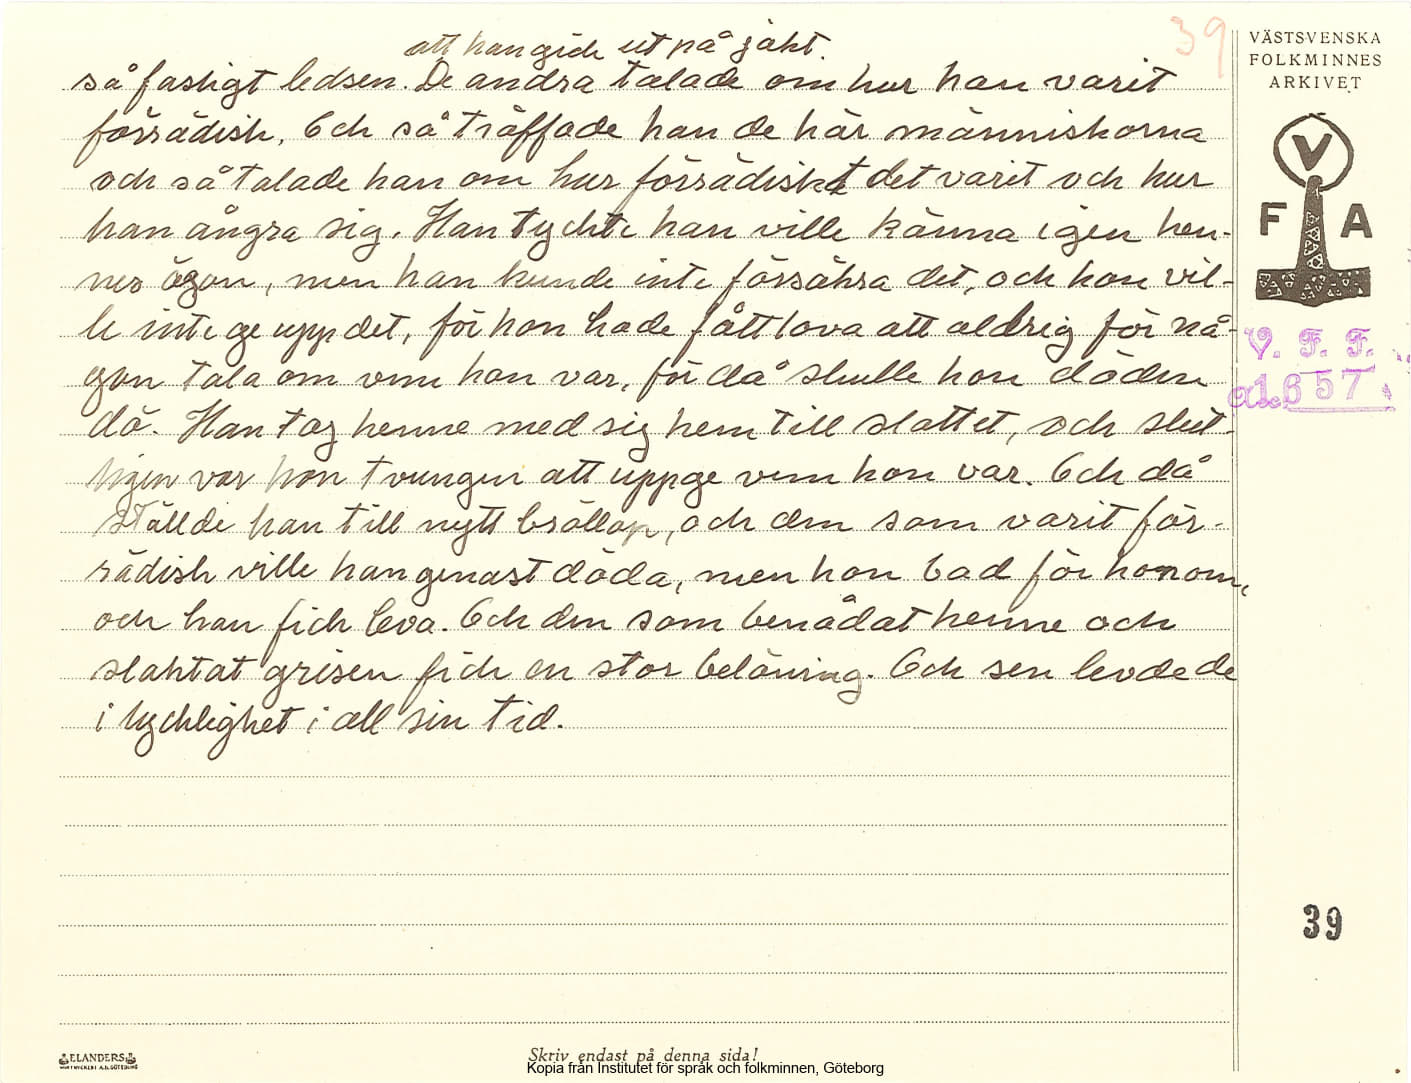 39
att han gick ut på jakt.
så fasligt ledsen. De andra talade om hur han varit
förrädisk. Och så träffade han de här människorna
och så talade han om hur förrädiskt det varit och hur
han ångra sig. Han tyckte han ville känna igen hen-
nes ögon, men han kunde inte försäkra det, och hon vil-
le inte ge upp det, för hon hade fått lova att aldrig för nå-
gon tala om vem hon var, för då skulle hon döden
dö. Han tog henne med sig hem till slottet, och slut-
ligen var hon tvungen att uppge vem hon var. Och då
ställde han till nytt bröllop, och den som varit för-
rädisk ville han genast döda, men hon bad för honom,
och han fick leva. Och den som benådat henne och
slaktat grisen fick en stor belöning. Och sen levde de
i lycklighet i all sin tid.
VÄSTSVENSKA
FOLKMINNES
ARKIVET
V
F A
V. F. F.
1657
39
ELANDERS
Skriv endast på denna sida!
Kopia från Institutet för språk och folkminnen, Göteborg